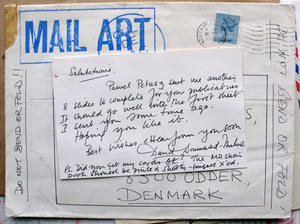 MAIL ART
Salutations.
Pawel Petasz sent me another
8 slides to complete for your publication
It should go well with the first sheet
I sent you some time ago.
Hoping you like it.
Best wishes & Hear from you soon
David
Ps. Did you get my cards ok? The
book should be printed shortly
8300 ODDER
DENMARK
DO NOT BEND OR FOLD!!
DO NOT BEND OR FOLD